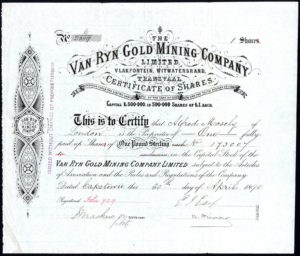 No
1 Shares.
THE
VAN RYN GOLD MINING COMPANY
LIMITED.
VLAKFONTEIN, WITWATERSRAND,
TRANSVAAL
CERTIFICATE OF SHARES.
CAPITAL £500,000 IN 500,000 SHARES OF £1. EACH.
This is to Certify that Alfred Mosely of
London is the Proprietor of One fully
paid up Shares of One Pound Sterling each No 173007
to inclusive in the Capital Stock of the
VAN RYN GOLD MINING COMPANY LIMITED, subject to the Articles
of Association and the Rules and Regulations of the Company.
Dated Capetown this 30th day of April 1890
Registered Folio 729